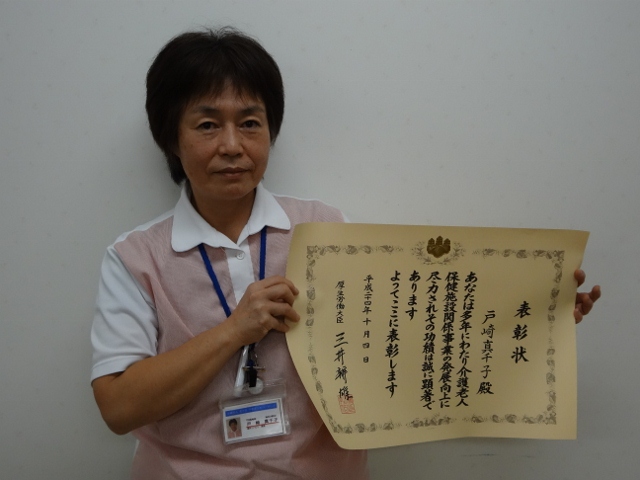 表彰状
戸崎真千子殿
あなたは多年にわたり介護老人
保健施設関係事業の発展向上に
尽力されその功績は誠に顕著で
あります
よってここに表彰します
平成二十四年十月四日
厚生労働大臣 三井辨雄